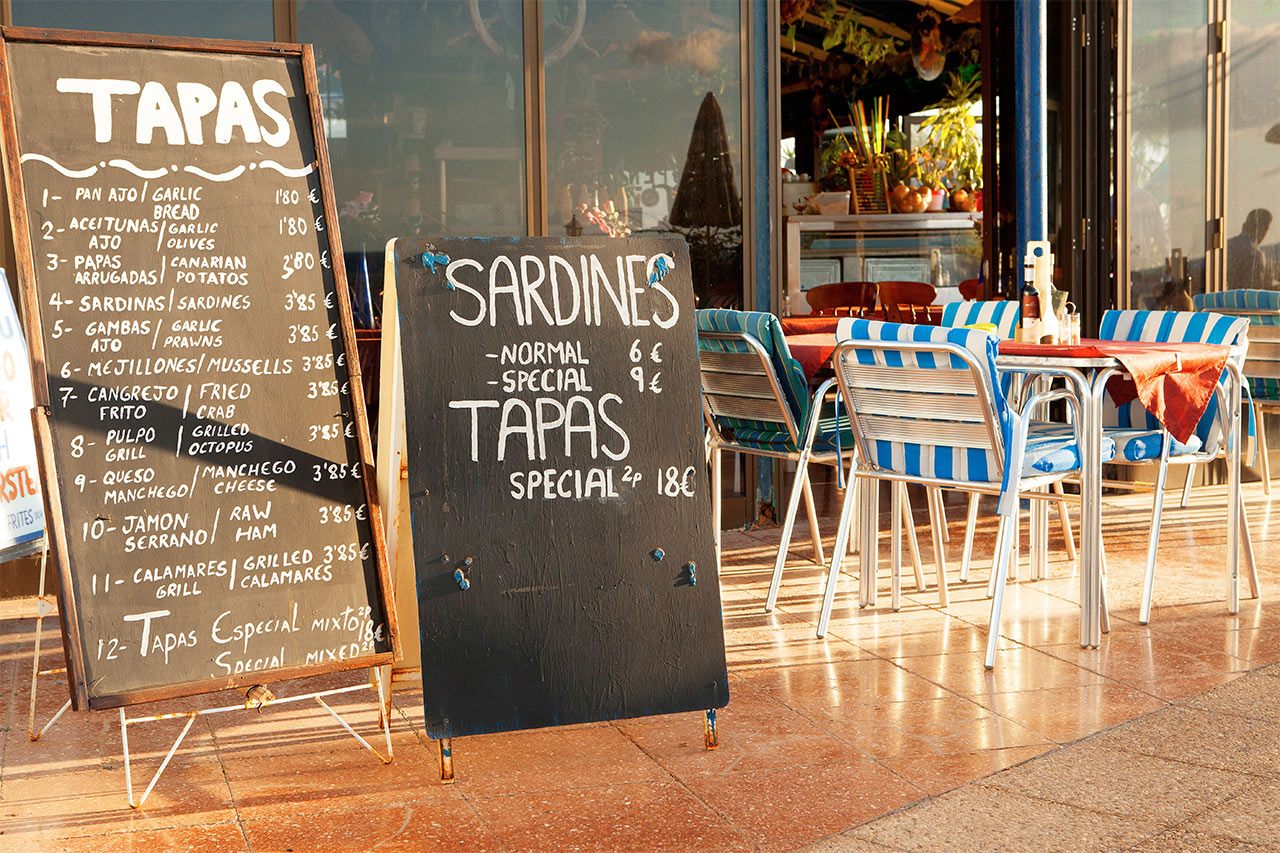 TAPAS
1- PAN AJO / GARLIC 1'80 €
BREAD
2- ACEITUNAS / GARLIC 1'80 €
AJO OLIVES
3- PAPAS / CANARIAN €
ARRUGADAS POTATOS
4- SARDINAS / SARDINES 3'85 €
5- GAMBAS / GARLIC 3'85 €
AJO PRAWNS
6- MEJILLONES / MUSSELLS 3'85 €
7- CANGREJO / FRIED 3'85 €
FRITO CRAB
8- PULPO / GRILLED 3'85 €
GRILL OCTOPUS
9- QUESO / MANCHEGO 3'85 €
MANCHEGO CHEESE
10- JAMON / RAW 3'85 €
SERRANO HAM
11- CALAMARES / GRILLED 3'85 €
GRILL CALAMARES
12- TAPAS ESPECIAL MIXTO 2P 18€
SPECIAL MIXED 2P
SARDINES
-NORMAL 6 €
-SPECIAL 9 €
TAPAS
SPECIAL 2P 18€
FRITES